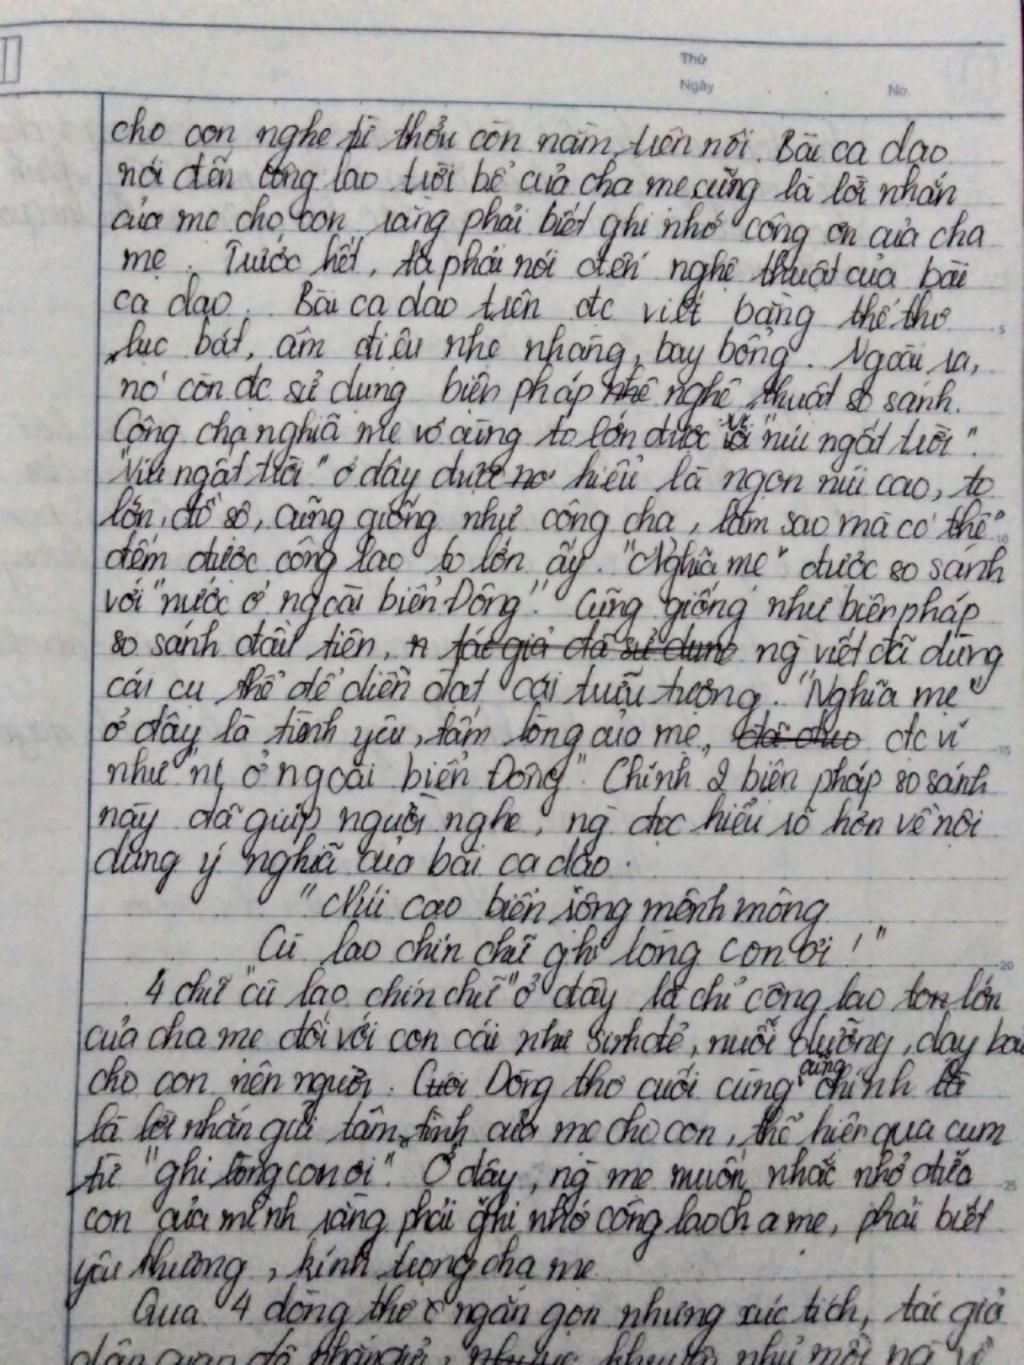 Thứ
Ngày
No.
cho con nghe từ thưở còn nằm trên nôi. Bài ca dao
nói đến công lao trời bể của cha mẹ cũng là lời nhắn
của mẹ cho con rằng phải biết ghi nhớ công ơn của cha
mẹ. Trước hết, ta phải nói đến nghệ thuật của bài
ca dao. Bài ca dao trên đc viết bằng thể thơ
lục bát, âm điệu nhẹ nhàng, bay bổng. Ngoài ra,
nó còn đc sử dụng biện pháp nghệ thuật so sánh.
Công cha nghĩa mẹ vô cùng to lớn được ví "núi ngất trời".
"Núi ngất trời" ở đây được hiểu là ngọn núi cao, to
lớn, đồ sộ, cũng giống như công cha, làm sao mà có thể
đếm được công lao to lớn ấy. "Nghĩa mẹ" được so sánh
với "nước ở ngoài biển Đông". Cũng giống như biện pháp
so sánh đầu tiên, tác giả đã sử dụng ng viết đã dùng
cái cụ thể để diễn đạt cái trừu tượng. "Nghĩa mẹ"
ở đây là tình yêu, tấm lòng của mẹ, đc ví
như "nc ở ngoài biển Đông". Chính 2 biện pháp so sánh
này đã giúp người nghe, ng đọc hiểu rõ hơn về nội
dung ý nghĩa của bài ca dao.
"Núi cao biển rộng mênh mông
Cù lao chín chữ ghi lòng con ơi!"
4 chữ "cù lao chín chữ" ở đây là chỉ công lao to lớn
của cha mẹ đối với con cái như sinh đẻ, nuôi dưỡng, dạy bảo
cho con nên người. Dòng thơ cuối cùng cũng chính
là lời nhắn gửi tâm tình của mẹ cho con, thể hiện qua cụm
từ "ghi lòng con ơi". Ở đây, ng mẹ muốn nhắc nhở đứa
con của mình rằng phải ghi nhớ công lao cha mẹ, phải biết
yêu thương, kính trọng cha mẹ
Qua 4 dòng thơ ngắn gọn nhưng xúc tích, tác giả
dân gian đã